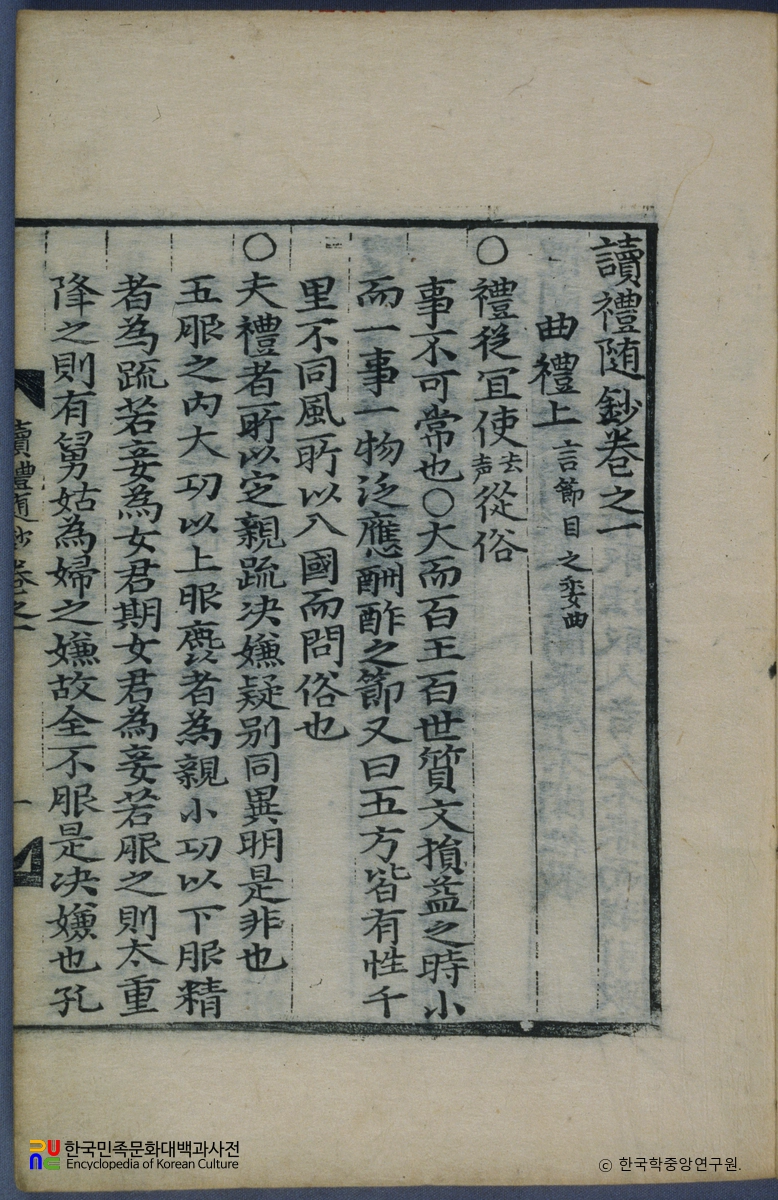 讀禮隨鈔卷之一
曲禮上 言節目之委曲
○禮從宜使去声從俗
事不可常也○大而百王百世質文損益之時小
而一事一物泛應酬酢之節又曰五方皆有性千
里不同風所以入國而問俗也
○夫禮者所以定親疏决嫌疑别同異明是非也
五服之内大功以上服麄者為親小功以下服精
者為疏若妾為女君期女君為妾若服之則太重
降之則有舅姑為婦之嫌故全不服是决嫌也孔
讀禮隨鈔卷之一
一
한국민족문화대백과사전
Encyclopedia of Korean Culture
ⓒ 한국학중앙연구원.